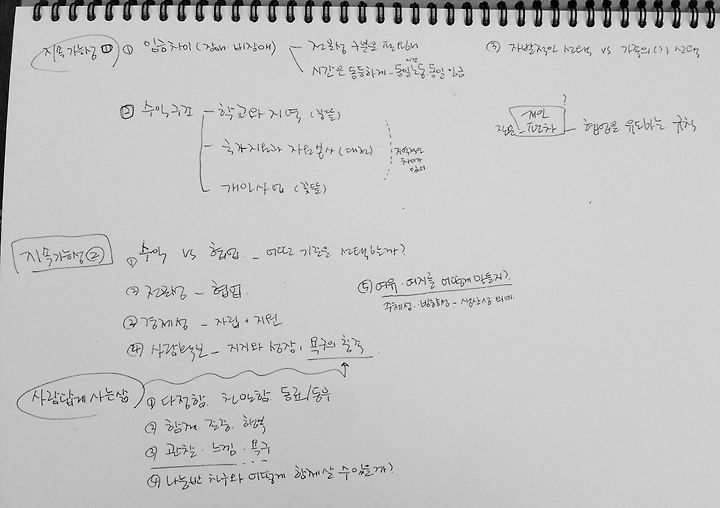 지속가능성 ① ① 임금차이 (장애 비장애) - 전환성 구분으로 필요해
시간은 동등하게 - 동일시간노동, 동일임금
③ 자발적인 선택 vs 가족의(기) 선택
② 수익구조 - 학교와 지역 (꽃들)
- 국가지원과 자원봉사 (대전)
- 개인사업 (꽃들)
지역적인 차이가 있어
?
개인편차 - 협업을 유도하는 규칙
지속가능성 ②
① 수익 vs 협업 - 어떤 기준을 선택하는가?
② 전환성 - 협업
③ 경제성 - 자립 + 지원
④ 사람확보 - 지지와 성장, 욕구의 충족
⑤ 여유·여지를 어떻게 만들지?
주체성·방향성 - 생산성 의미
사람답게 사는 삶
① 다정함, 친밀함, 동료/동무
② 함께 존중, 행복
③ 관찰·느낌·욕구
④ 나눔반 친구와 어떻게 함께 살 수 있을까?